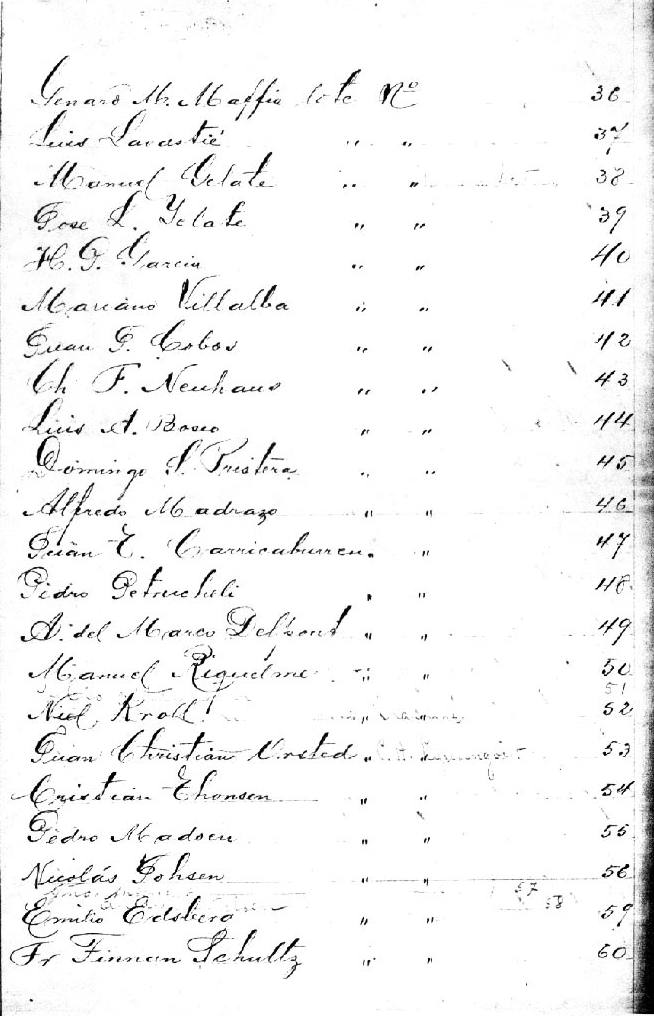 Genaro M. Maffia lote Nº 36
Luis Lavastié " " 37
Manuel Gelate " " 38
Jose L. Yelate " " 39
H. G. Garcia " " 40
Mariano Villalba " " 41
Juan F. Cobos " " 42
Ch F. Neuhaus " " 43
Luis A. Bosco " " 44
Domingo S. Pristera " " 45
Alfredo Madrazo " " 46
Juan E. Carricaburreu " " 47
Pedro Petrucheli " " 48
A. del Marco Delpont " " 49
Manuel Riquelme " " 50
51
Niel Kroll " 52
Juan Christian Orsted " " 53
Cristian Thonsen " " 54
Pedro Madsen " " 55
Nicolás Johsen " " 56
57
58
Emilio Edsberg " " 59
Fr Finnan Schultz " " 60